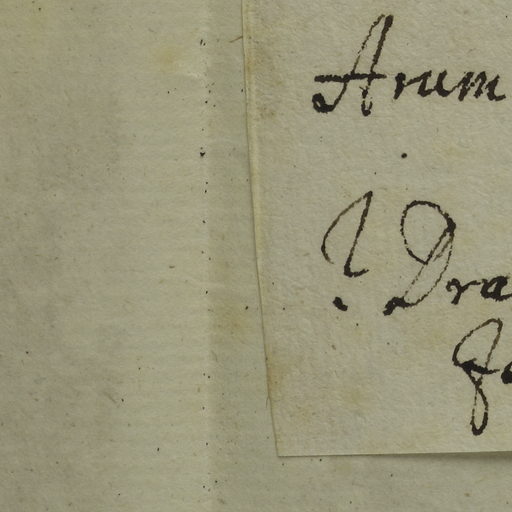 Arum
1. Dra